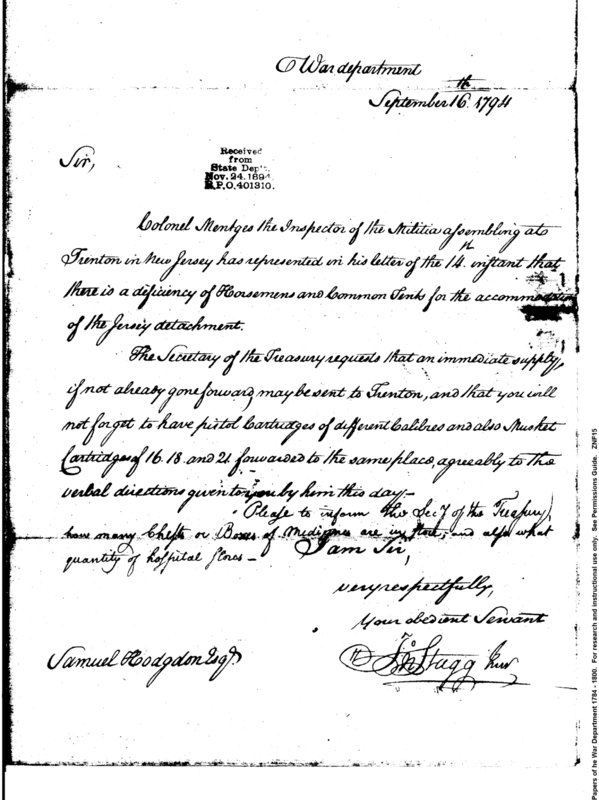 War department
September 16th. 1794
Received
from
State Dep't.
Nov. 24. 1894
R.P.O. 401310.
Sir,
Colonel Mentges the Inspector of the Militia assembling at
Trenton in New Jersey has represented in his letter of the 14th. instant that
there is a deficiency of Horsemens and Common Tents for the accommodation
of the Jersey detachment.
The Secretary of the Treasury requests that an immediate supply,
if not already gone forward, may be sent to Trenton, and that you will
not forget to have pistol Cartridges of different Calibres and also Musket
Cartridges of 16. 18. and 21. forwarded to the same place, agreeably to the
verbal directions given to you by him this day.—
Please to inform the Secy of the Treasury,
how many Chests or Boxes of Medicines are in store, and also what
quantity of hospital stores—
I am Sir,
very respectfully,
Your obedient Servant
Jno Stagg Junr
Samuel Hodgdon Esqr.
Papers of the War Department 1784 - 1800. For research and instructional use only. See Permissions Guide. ZNF15